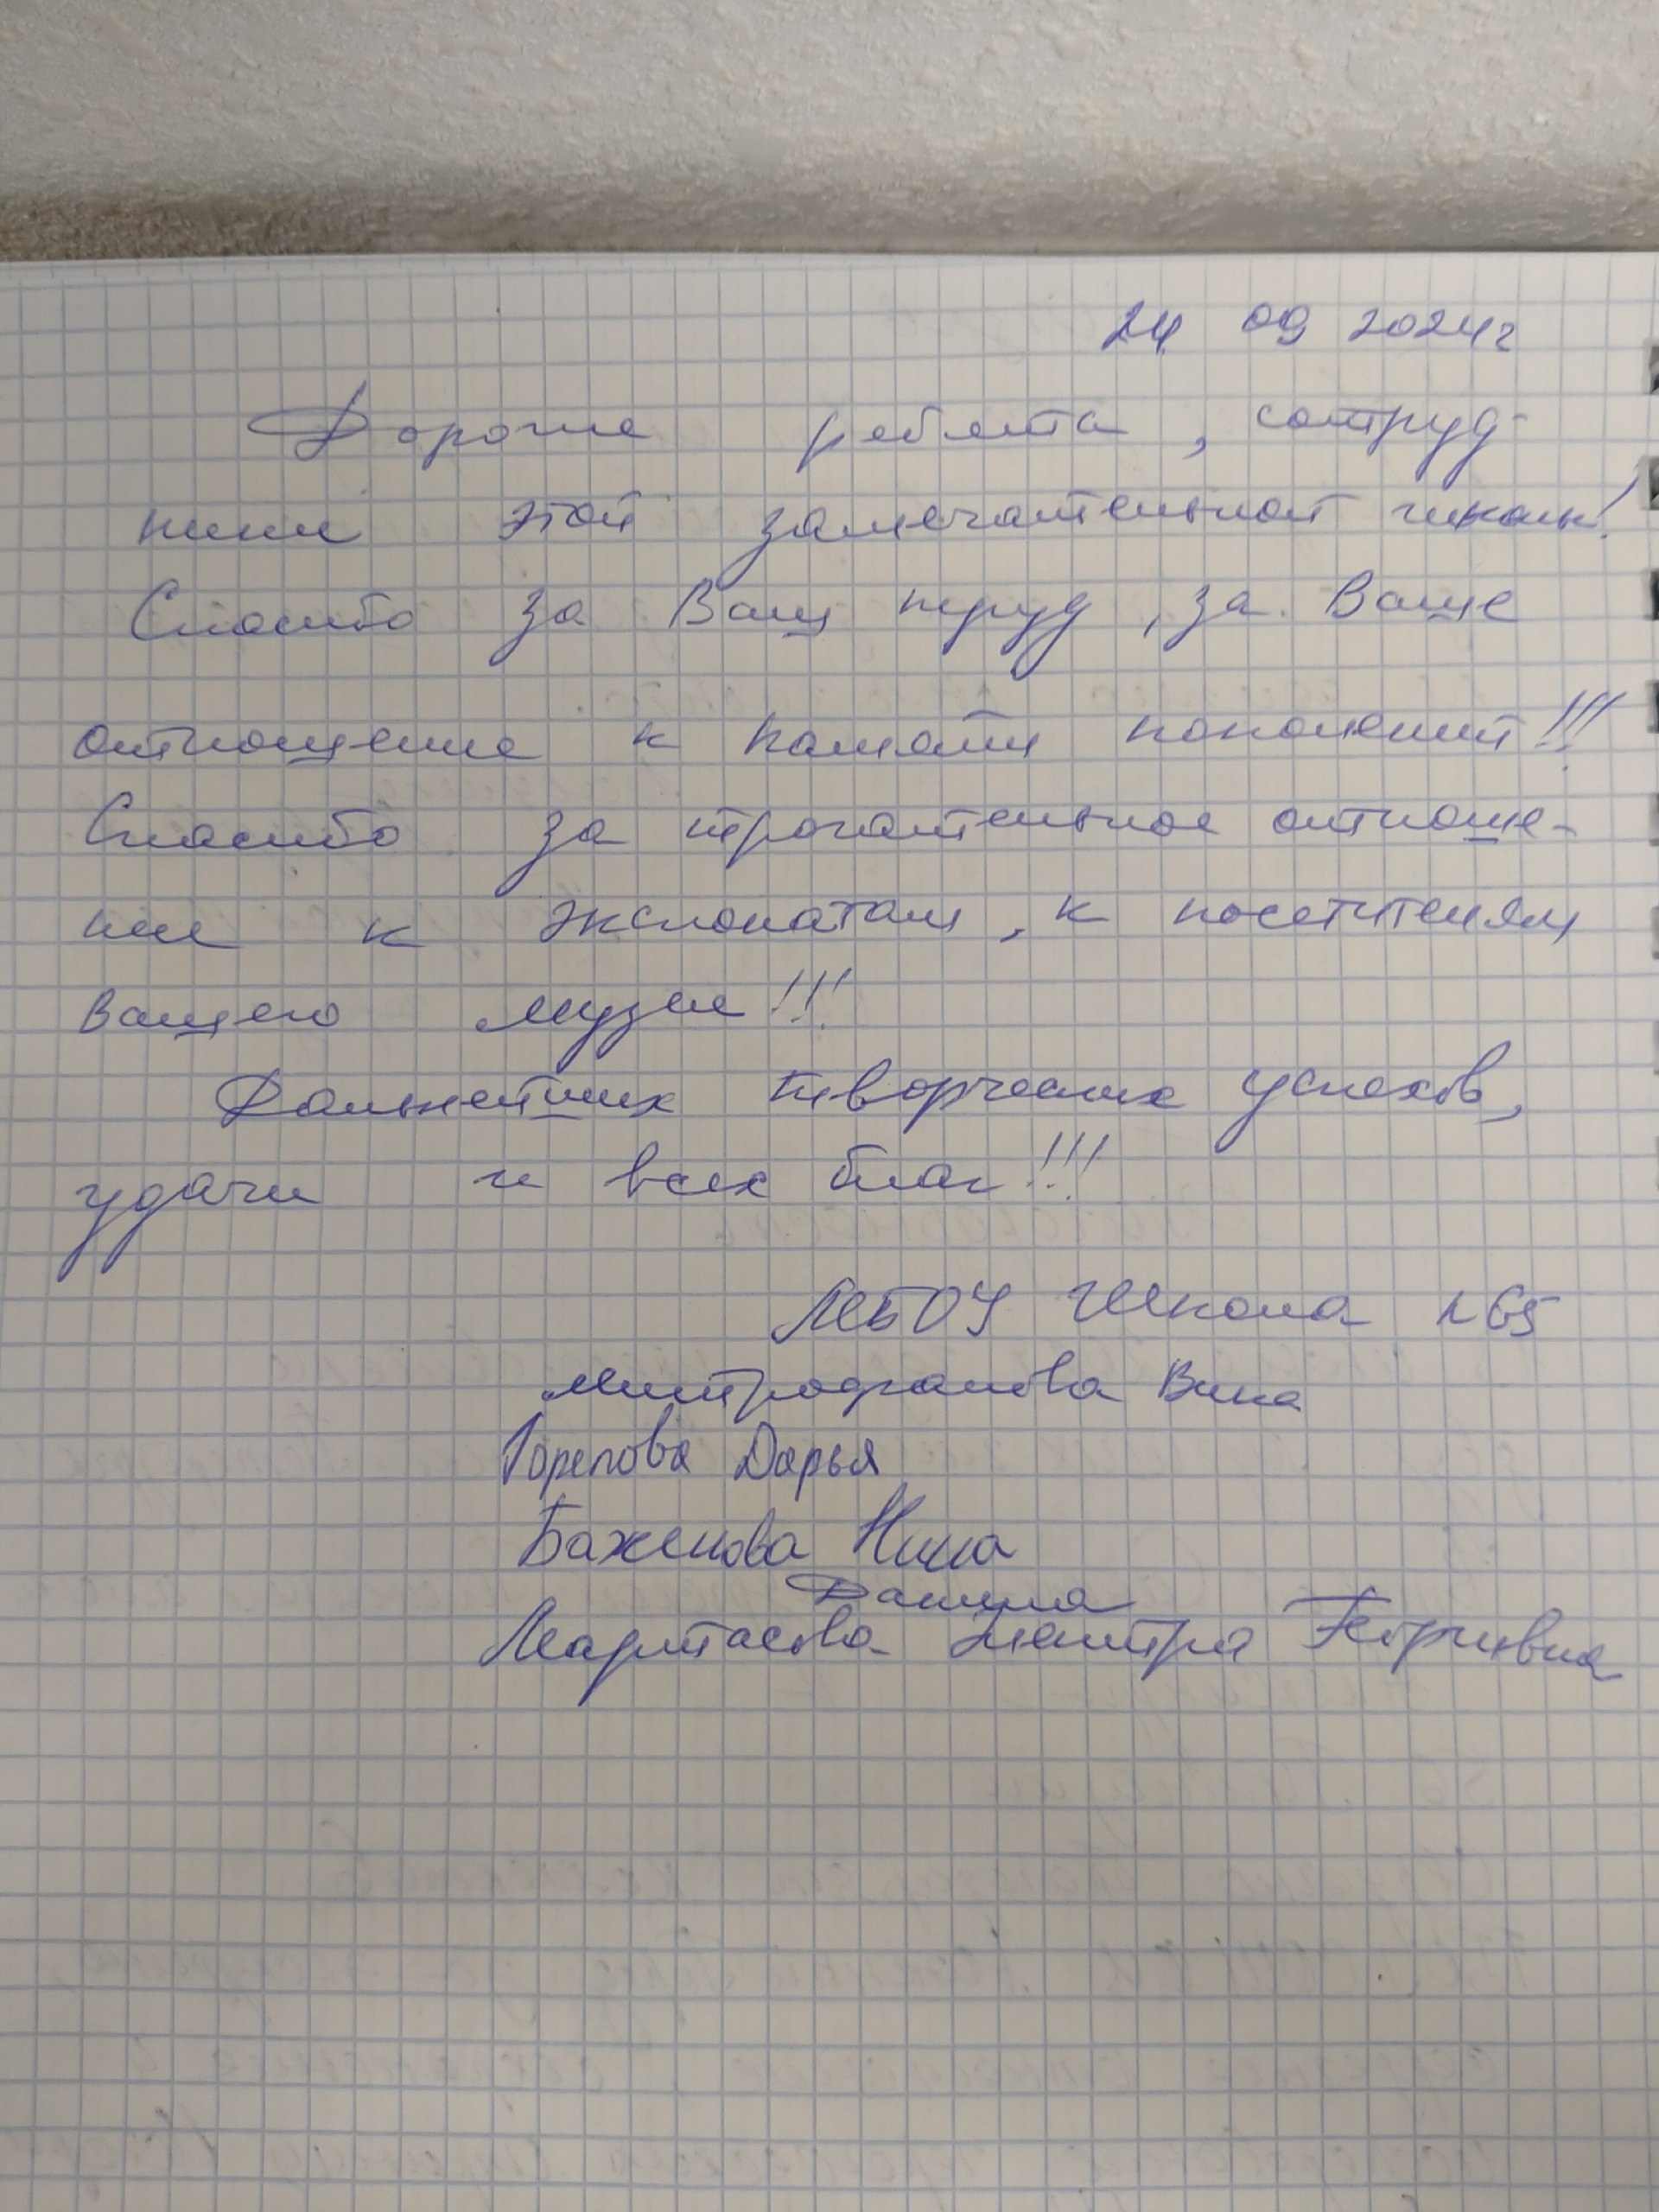 24 09 2024г
Дорогие ребята, сотруд-
ники этой замечательной школы!
Спасибо за Ваш труд, за Ваше
отношение к памяти поколений!!!
Спасибо за трогательное отноше-
ние к экспонатам, к посетителям
Вашего музея!!!
Дальнейших творческих успехов,
удачи и всех благ!!!
МБОУ Школа №65
Митрофанова Вика
Горепова Дарья
Баженова Нина
Дашина
Мартасова Георгиевна